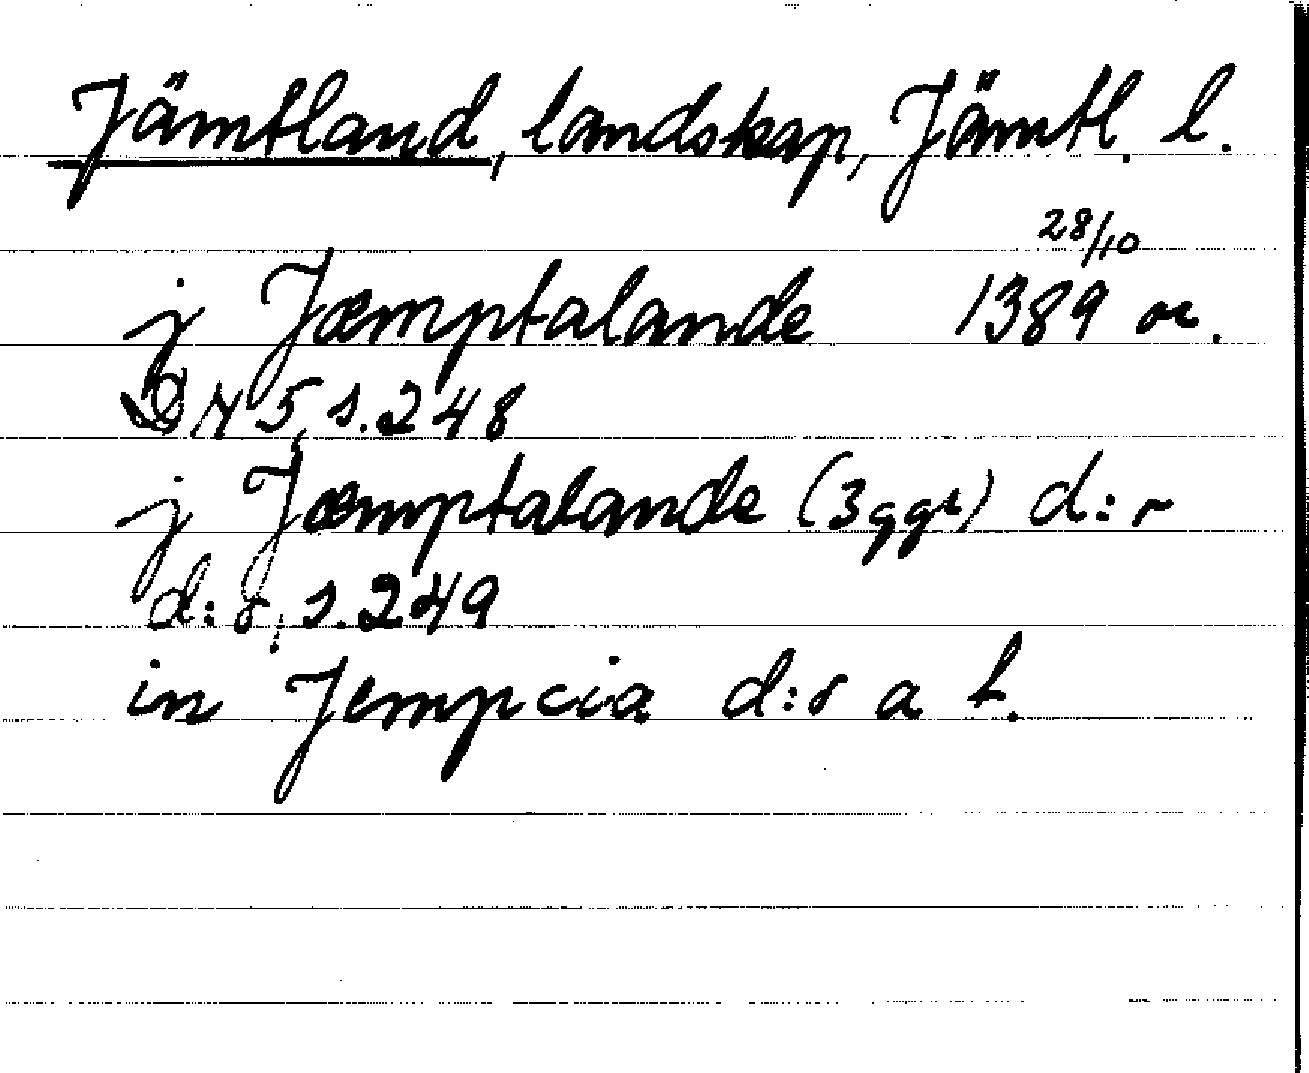 Jämtland, landskap, Jämtl. l.
28/10
j Jæmptalande 1389 or.
DN 5, s. 248
j Jæmptalande (3 ggr) d:r
d:o, s. 249
in Jempcia d:o a t.